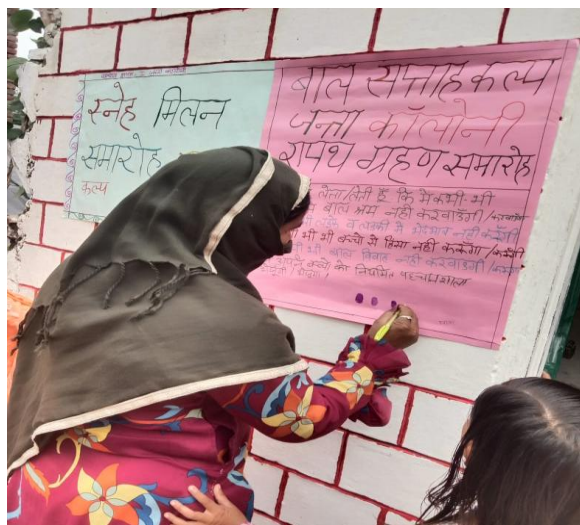 स्नेह मिलन
समारोह
कल्प
बाल सप्ताह कल्प
जनता कॉलोनी
शपथ ग्रहण समारोह
लेता/लेती हूँ कि मैं कभी भी
बाल श्रम नहीं करवाउंगी
व लड़की में भेदभाव नहीं करूँगी
भी भी बच्चों से हिंसा नहीं करूँगा/करूँगी
भी बाल विवाह नहीं करवाउंगी
बच्चों को नियमित